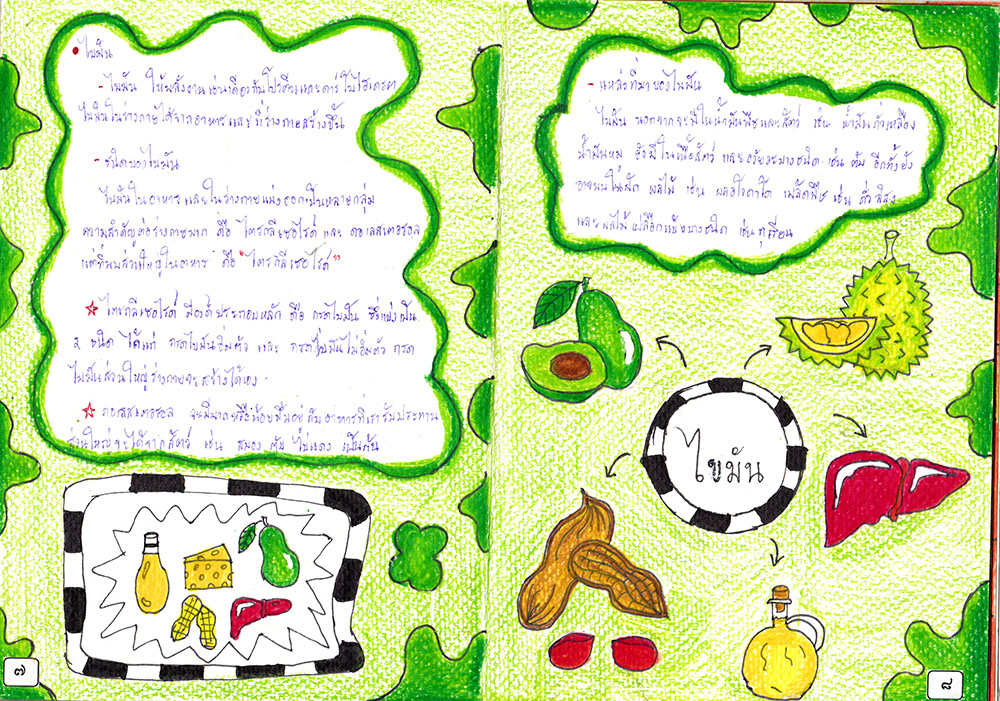 • ไขมัน
- ไขมัน ให้พลังงานเช่นเดียวกับโปรตีนและคาร์โบไฮเดรตา
ไขมันในร่างกายได้จากอาหารและที่ร่างกายสร้างขึ้น
- ชนิดของไขมัน
ไขมันในอาหาร และในร่างกายแบ่งออกเป็นหลายกลุ่ม
ความสำคัญต่อร่างกายมาก คือ ไตรกลีเซอไรด์ และ คอเลสเตอรอล
แต่ที่พบส่วนใหญ่ในอาหาร คือ "ไตรกลีเซอไรด์"
☆ ไตรกลีเซอไรด์ มีองค์ประกอบหลัก คือ กรดไขมัน ซึ่งแบ่งเป็น
๒ ชนิด ได้แก่ กรดไขมันอิ่มตัว และ กรดไขมันไม่อิ่มตัว กรด
ไขมันส่วนใหญ่ร่างกายจะสร้างได้เอง
☆ คอเลสเตอรอล จะมีมากหรือน้อยขึ้นอยู่กับอาหารที่เรารับประทาน
ส่วนใหญ่จะได้จากสัตว์ เช่น สมอง ตับ ไข่แดง เป็นต้น
๗
- แหล่งที่มาของไขมัน
ไขมัน นอกจากจะมีในน้ำมันพืชและสัตว์ เช่น น้ำมันถั่วเหลือง
น้ำมันหมู ยังมีในเนื้อสัตว์ และอวัยวะบางชนิด เช่น ตับ อีกทั้งยัง
อาจพบในผัก ผลไม้ เช่น ผลอโวคาโด เมล็ดพืช เช่น ถั่วลิสง
และผลไม้เปลือกแข็งบางชนิด เช่นทุเรียน
ไขมัน
๘